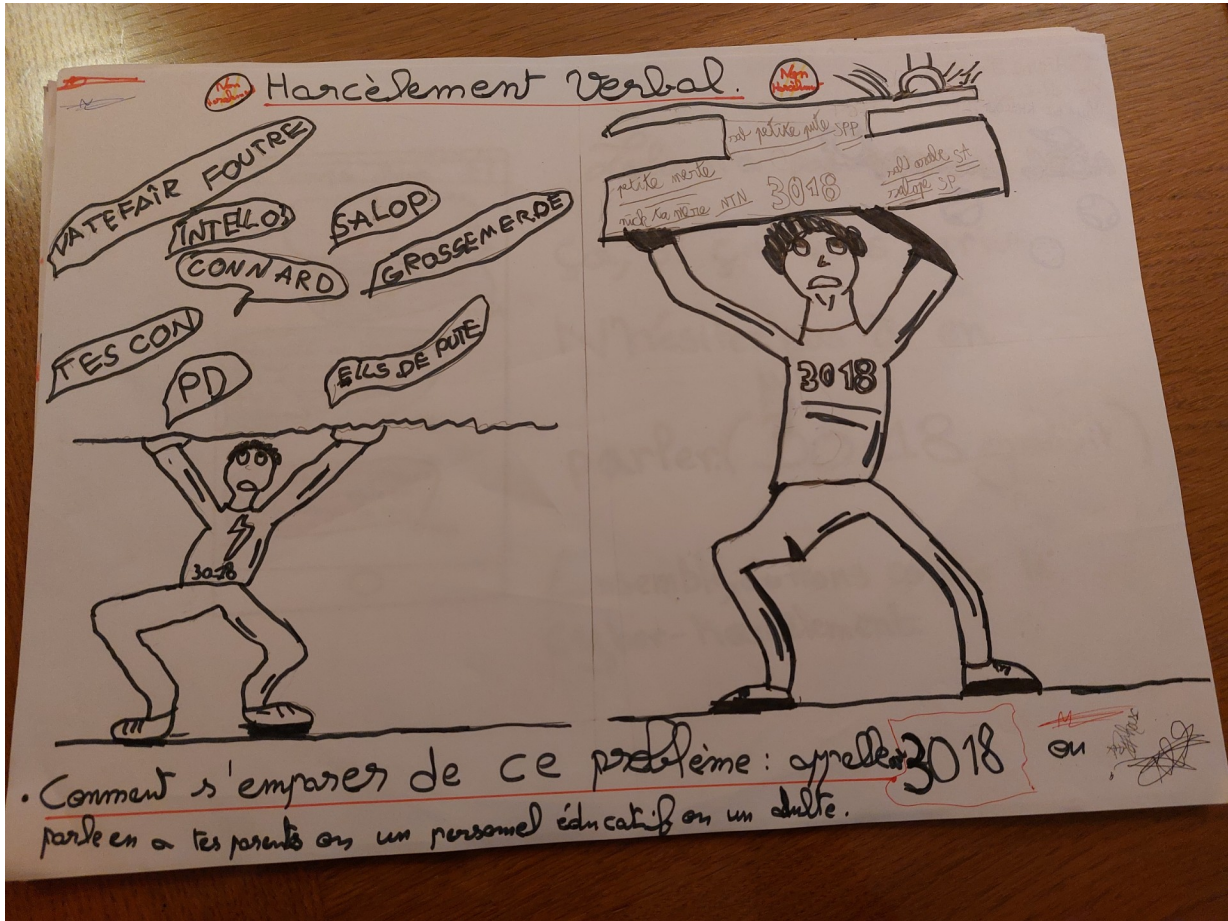 Non
Harcèlement Verbal.
Non
VATEFAÎR FOUTRE
INTELLO
SALOP
CONNARD
GROSSEMERDE
TES CON
PD
FILS DE PUTE
3018
sal petite pute SPP
petite merte
nick ta mère NTN
3018
salope SP
3018
. Comment s'emparer de ce problème : appelle 3018 ou
parle en a tes parents ou un personnel éducatif ou un adulte.